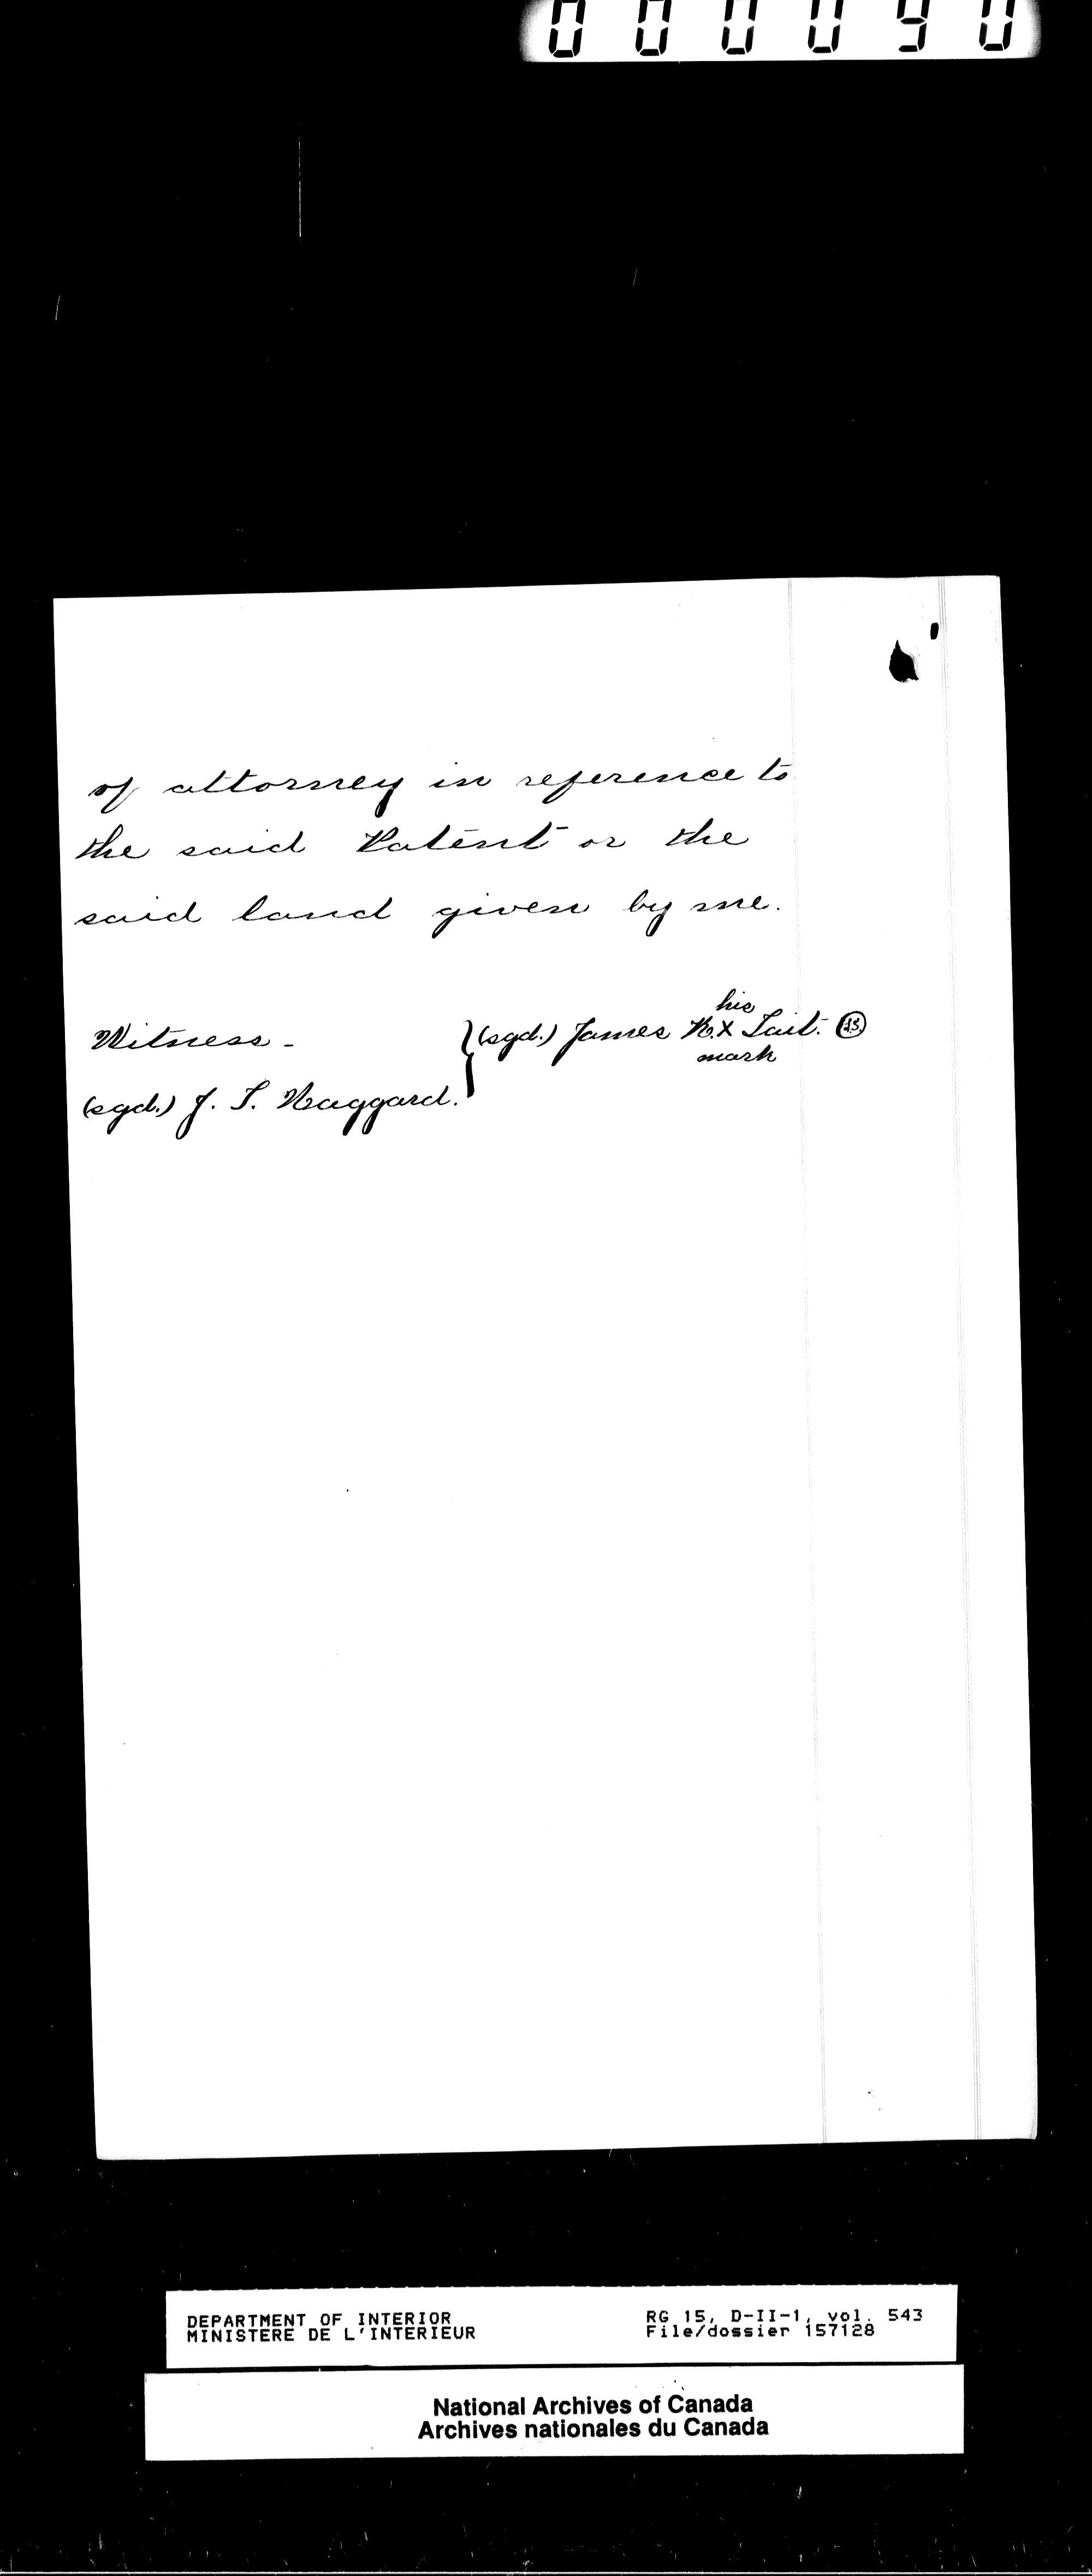 000090
of attorney in reference to
the said Patent or the
said land given by me.
his
Witness - } (sgd.) James R. X Tait.
mark
(sgd.) J. T. Haggard.
DEPARTMENT OF INTERIOR
MINISTERE DE L'INTERIEUR
RG 15, D-II-1, vol. 543
File/dossier 157128
National Archives of Canada
Archives nationales du Canada